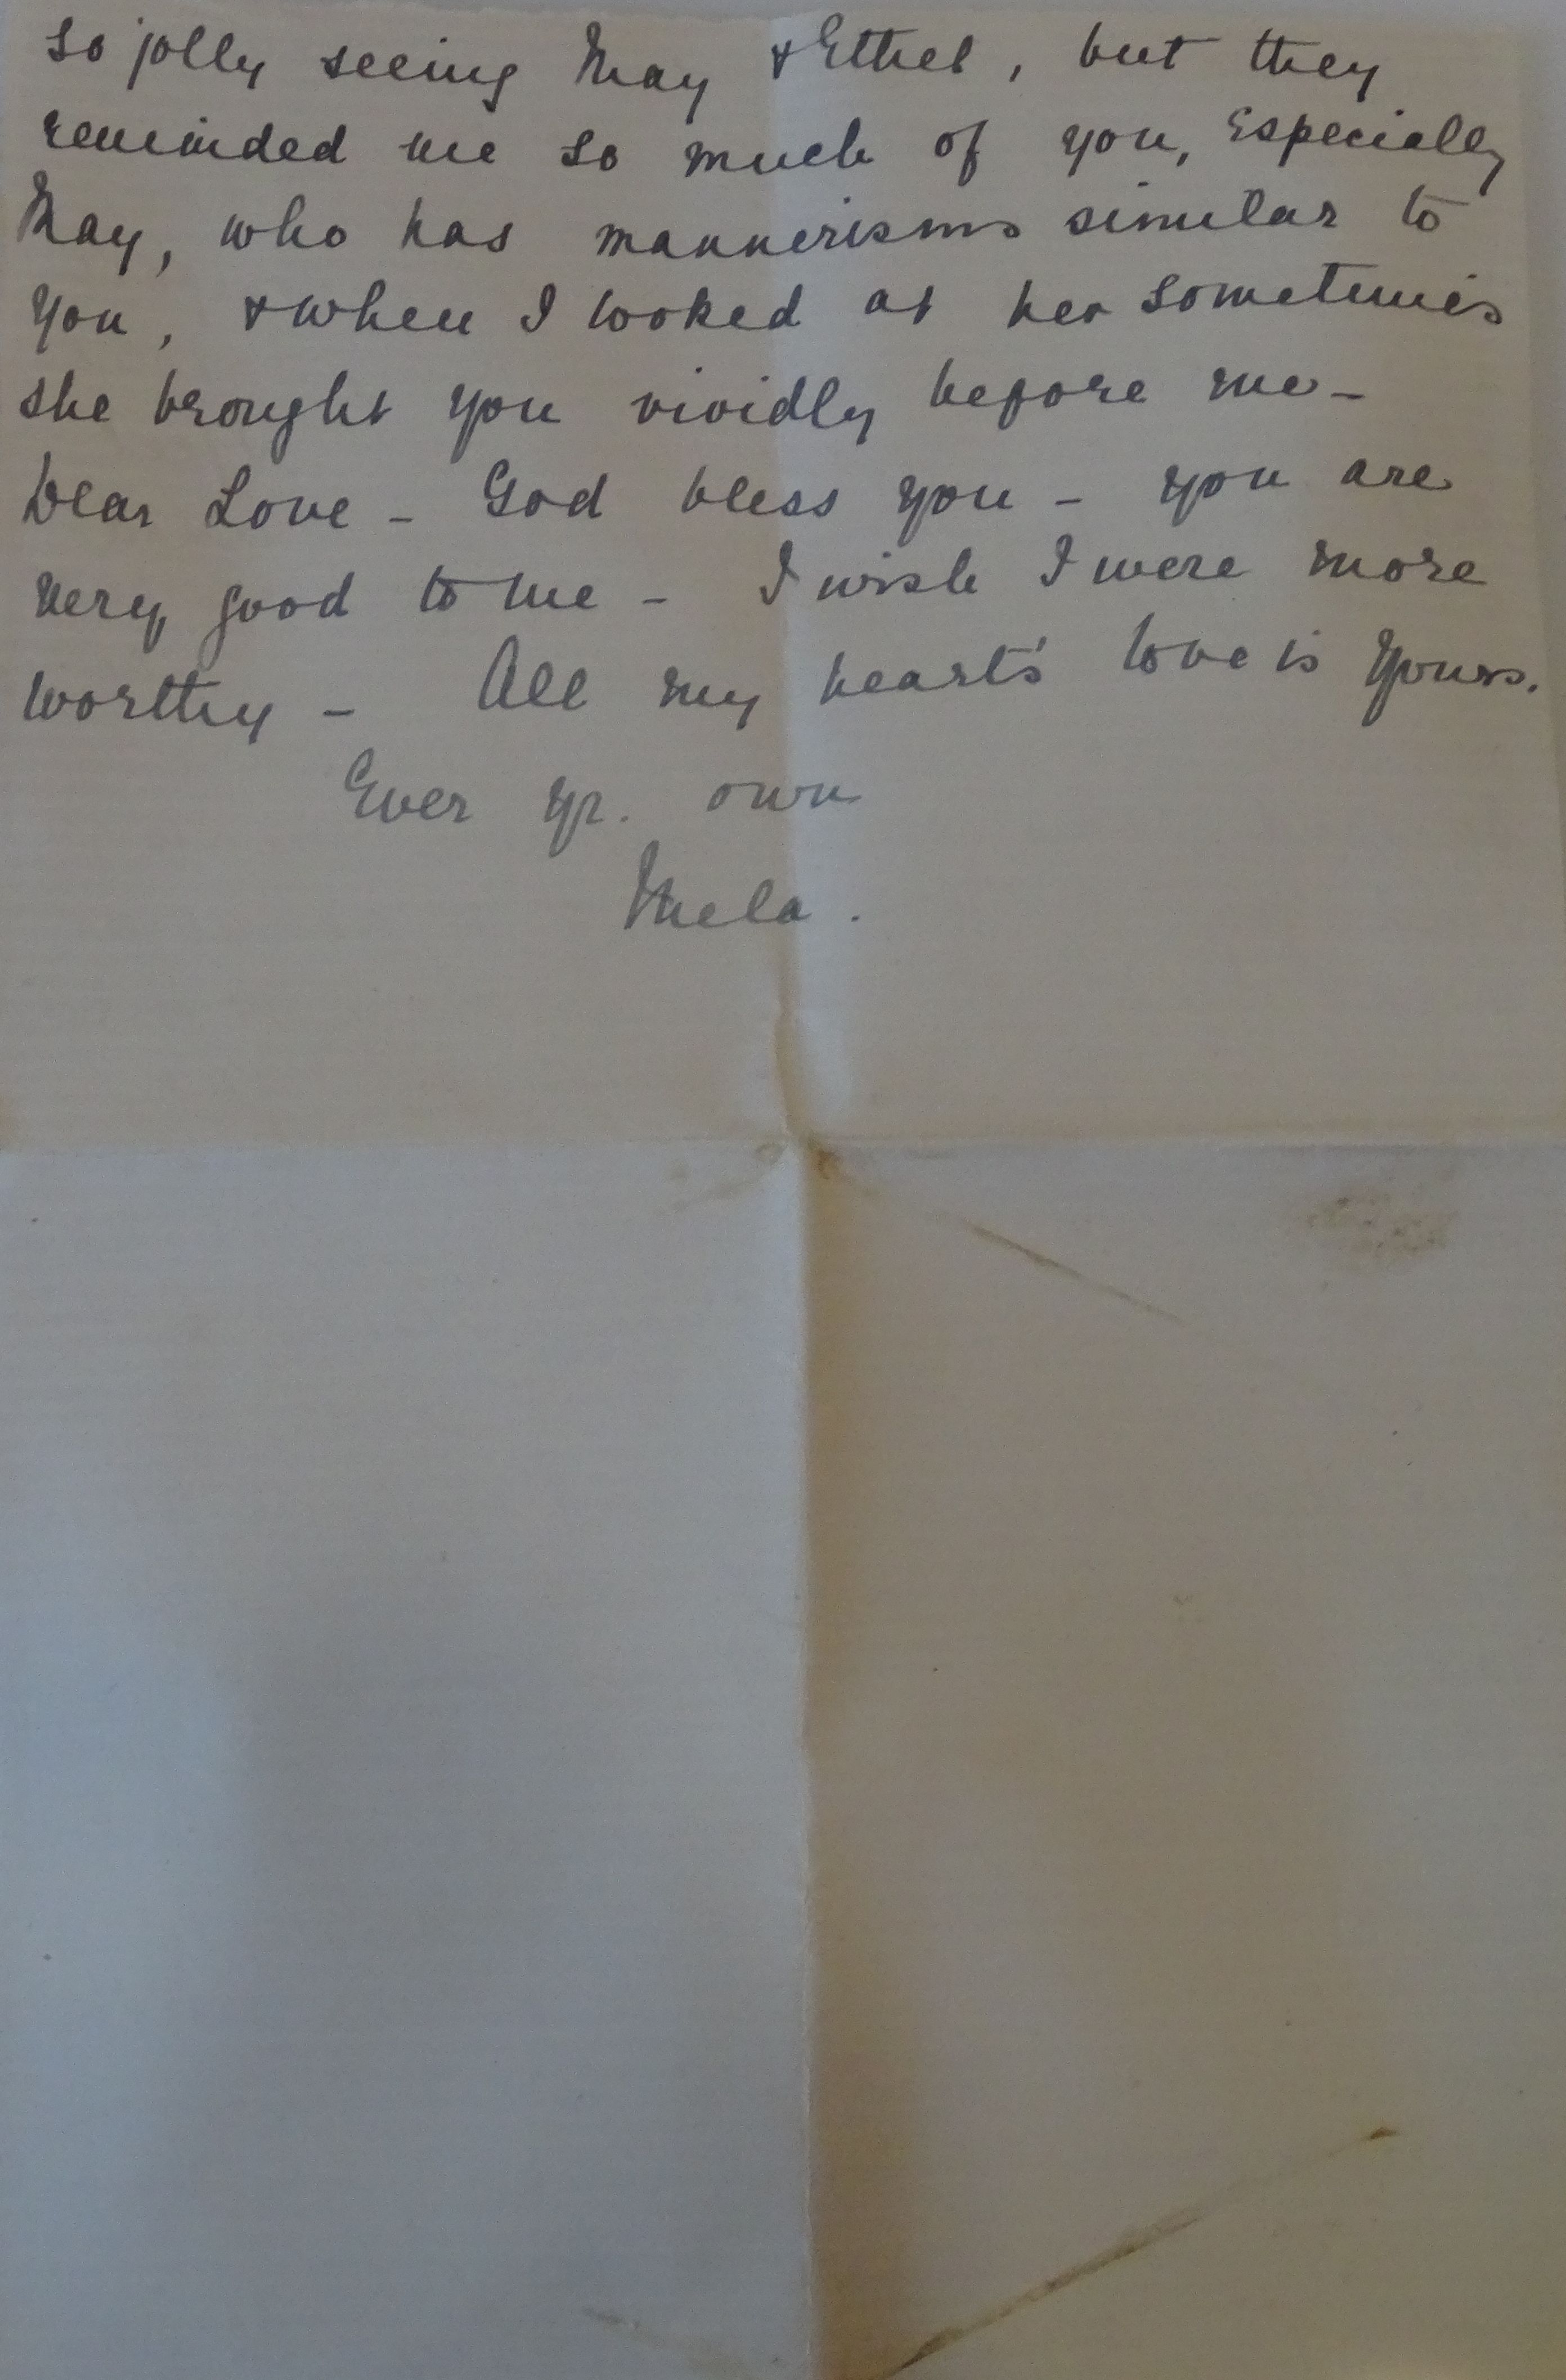 so jolly seeing May & Ethel, but they
reminded me so much of you, especially
May, who has mannerisms similar to
you, & when I looked at her sometimes
she brought you vividly before me -
Dear Love - God bless you - you are
very good to me - I wish I were more
worthy - All my heart's love is yours.
Ever yr. own
Mela.